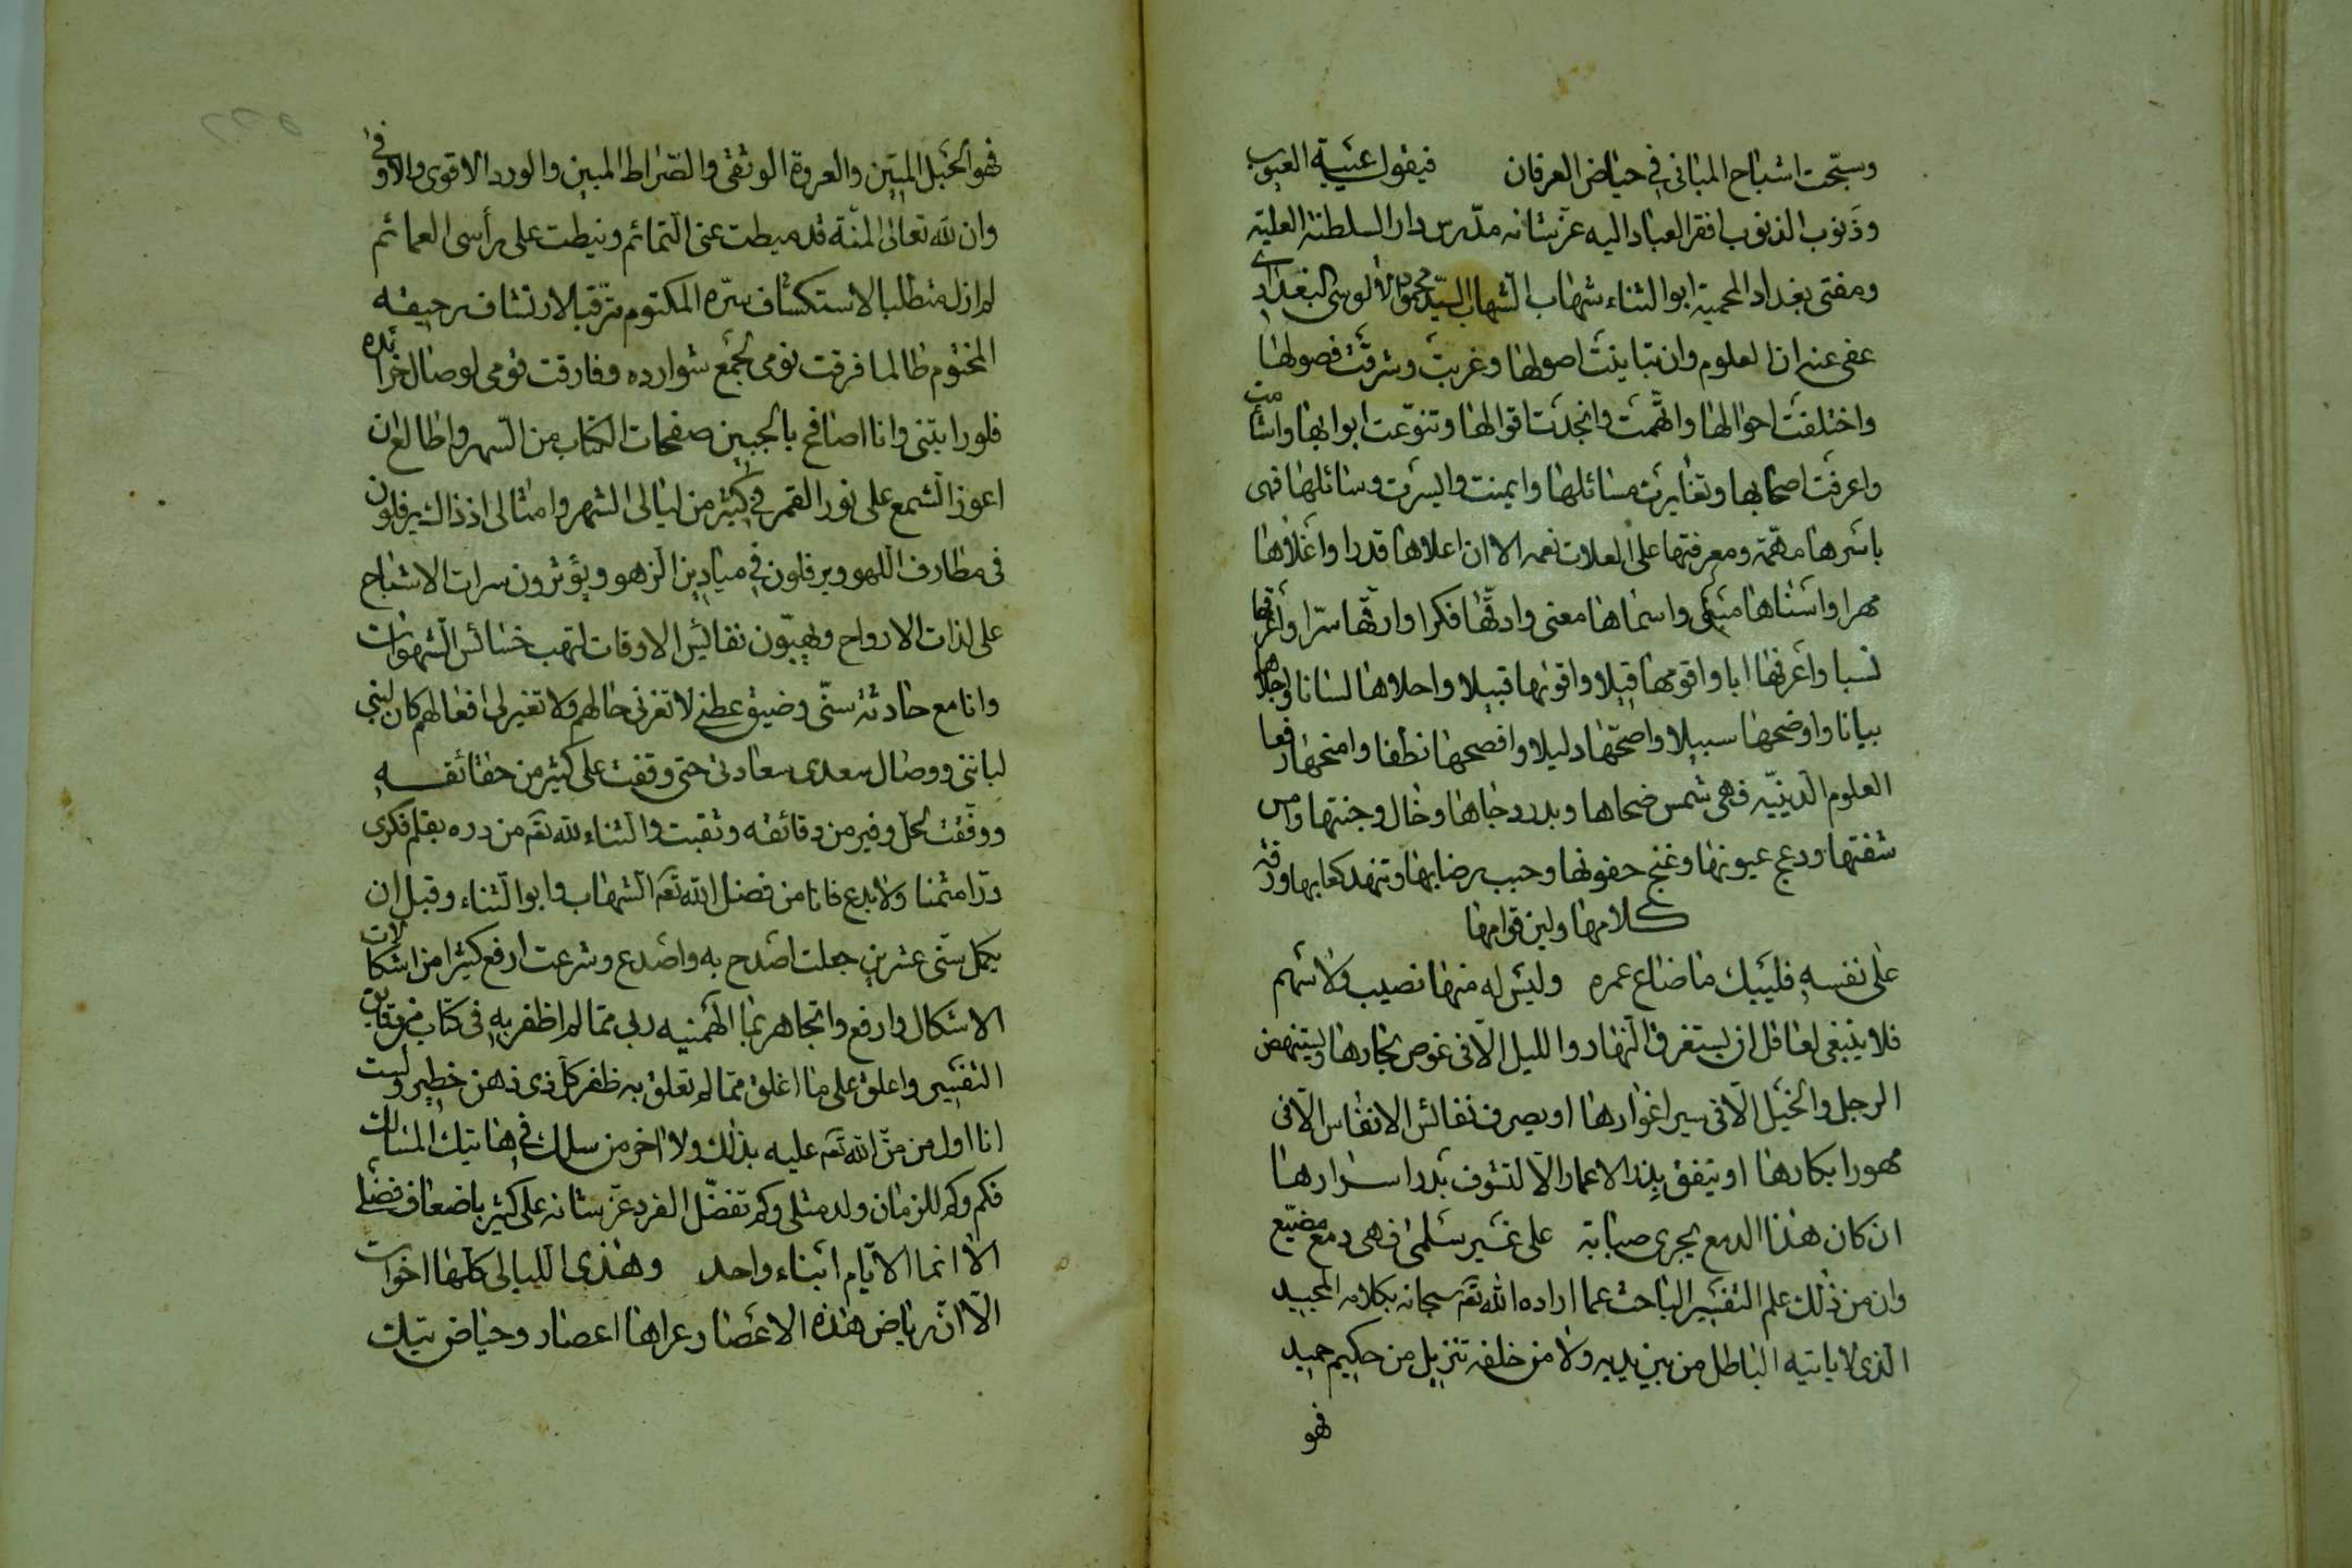 وسبّحت اشباح المباني في حياض العرفان فيقول عيبة العيوب
وذنوب الذنوب افقر العباد اليه عز شانه مدرس دار السلطنة العلية
ومفتي بغداد المحمية ابو الثناء شهاب الدين السيد محمود الآلوسي البغدادي
عفي عنه ان العلوم وان تباينت اصولها وغربت وشرقت فصولها
واختلفت احوالها واتهمت وانجدت اقوالها وتنوعت ابوابها واشأمت
واعرقت اصحابها وتغايرت مسائلها وايمنت وايسرت وسائلها فهي
باسرها مهمة ومعرفتها على العلات نعمه الا ان اعلاها قدرا واغلاها
مهرا واسناها مبنى واسماها معنى وادقها فكرا وارقها سرا واعرقها
نسبا واعرفها ابا واقومها قيلا واقواها قبيلا واحلاها لسانا واجلاها
بيانا واوضحها سبيلا واصحها دليلا وافصحها نطقا وامنحها رفعا
العلوم الدينيه فهي شمس ضحاها وبدر دجاها وخال وجنتها ولعس
شفتها ودعج عيونها وغنج جفونها وحبب رضابها وتنهد كعابها ورقة
كلامها ولين قوامها
على نفسه فليبك من ضاع عمره وليس له منها نصيب ولا سهم
فلا ينبغي لعاقل ان يستغرق النهار والليل الا في غوص بحارها ويستنهض
الرجل والخيل الا في سبر اغوارها او يصرف نفائس الانفاس الا في
مهور ابكارها او ينفق بدر الاعمار الا لتشوف بدر اسرارها
ان كان هذا الدمع يجري صبابة على غير سلمى فهو دمع مضيع
وان من ذلك علم التفسير الباحث عما اراده الله تعم سبحانه بكلامه المجيد
الذي لا ياتيه الباطل من بين يديه ولا من خلفه تنزيل من حكيم حميد
فهو
فهو الحبل المتين والعروة الوثقى والصراط المبين والورد الاقوى والاوفى
وان لله تعالى المنة قد ميطت عني التمائم ونيطت على رأسي العمائم
لم ازل متطلبا لاستكشاف سره المكتوم مترقبا لارتشاف رحيقه
المختوم طالما فرقت نومي لجمع شوارده وفارقت قومي لوصال خرائده
فلو رايتني وانا اصافح بالجبين صفحات الكتاب من السهر واطالع ان
اعوز الشمع على نور القمر في كثير من ليالي الشهر وامثالي اذ ذاك يرفلون
في مطارف اللهو ويرقلون في ميادين الزهو ويؤثرون مسرات الاشباح
على لذات الارواح ويهبون نفائس الاوقات لنهب خسائس الشهوات
وانا مع حداثة سنّي وضيق عطني لا تغرني حالهم ولا تغيرني افعالهم كان لبنى
لبانتي ووصال سعدى سعادتي حتى وقفت على كثير من حقائقه
ووفقت لحل وفير من دقائقه وثقبت والثناء لله تعم من دره بقلم فكري
درا مثمنا ولا بدع فانا من فضل الله تعم الشهاب وابو الثناء وقبل ان
يكمل سنّي عشرين جعلت اصدح به واصدع وشرعت ادفع كثيرا من اشكالات
الاشكال وادفع واتجاهر بما الهمنيه ربي مما لم اظفر به في كتاب من دقائق
التفسير واعلق على ما اغلق مما لم تعلق به ظفر كل ذي ذهن خطير ولست
انا اول من منّ الله تعم عليه بذلك ولا اخر من سلك في هاتيك المسالك
فكم وكم للزمان ولد مثلي وكم تفضل الفرد عز شانه على كثير باضعاف فضلي
الا انما الايام ابناء واحد وهذي الليالي كلها اخوات
الا ان رياض هذه الاعصار عراها اعصار وحياض تيك